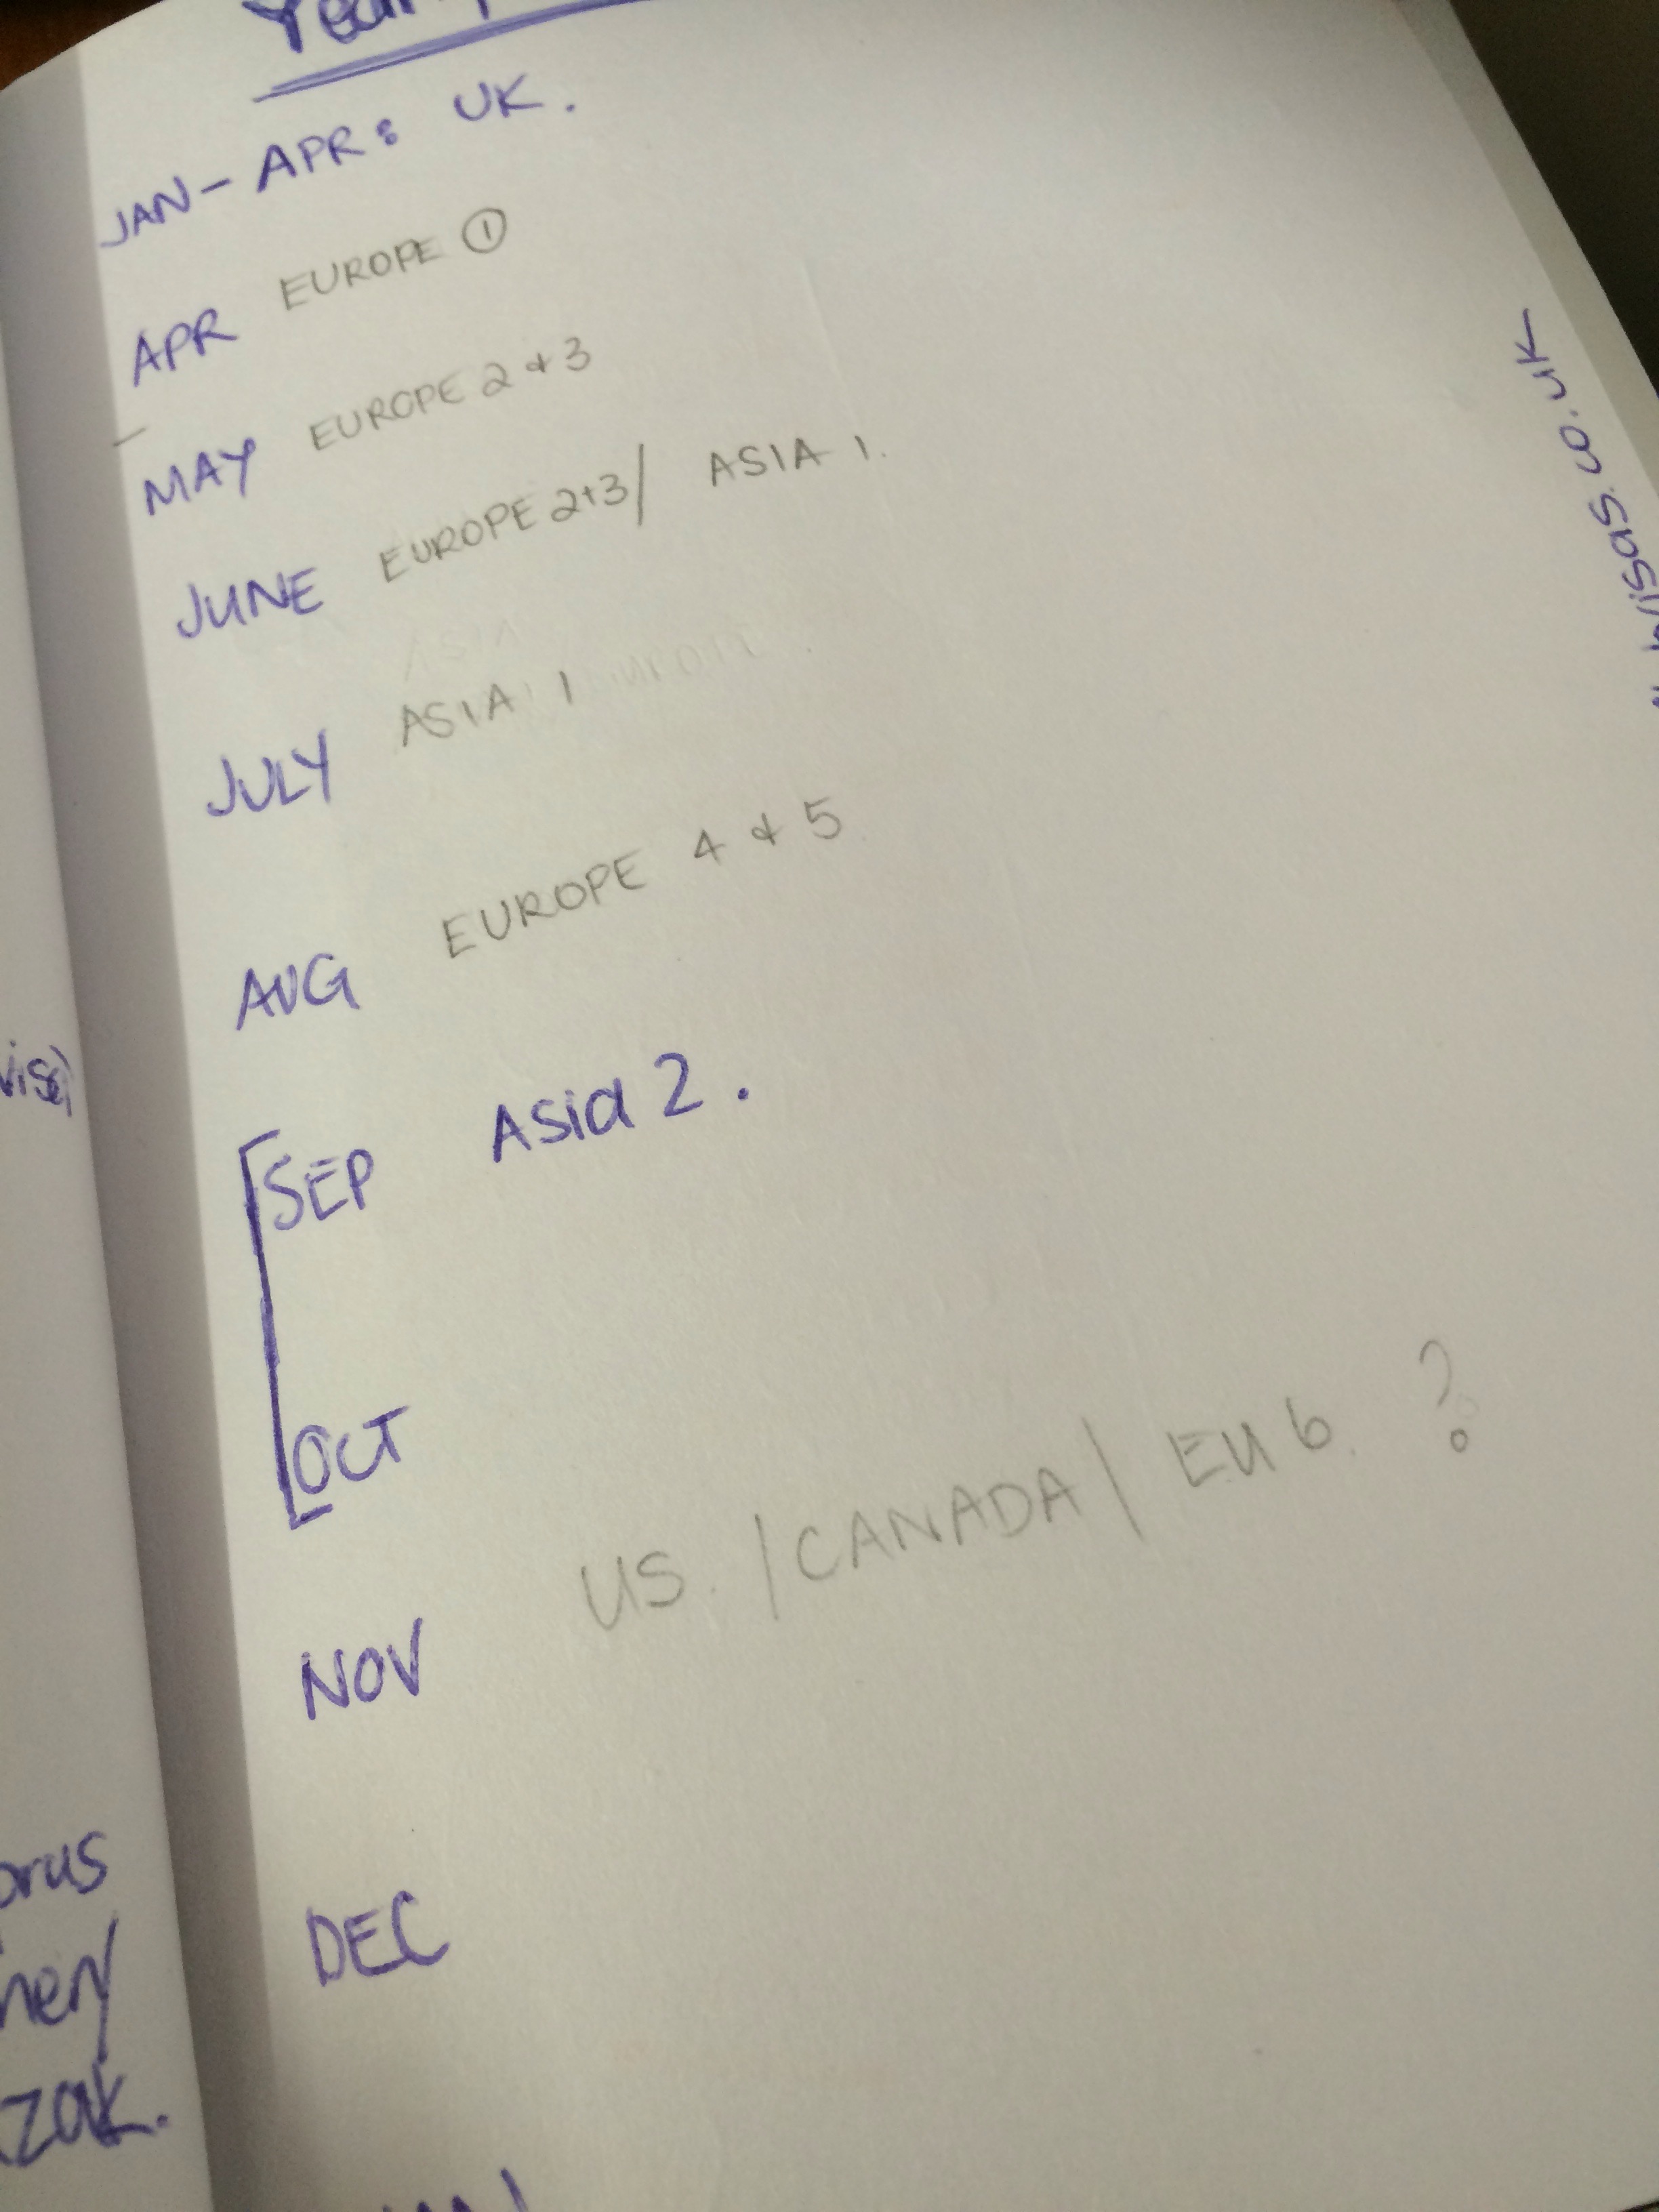 JAN - APR: UK.
APR EUROPE ①
MAY EUROPE 2 & 3
JUNE EUROPE 2+3 / ASIA 1.
JULY ASIA 1
AUG EUROPE 4 & 5
SEP Asia 2.
OCT
NOV US. / CANADA / EU 6. ?
DEC
visas.co.uk
zak.